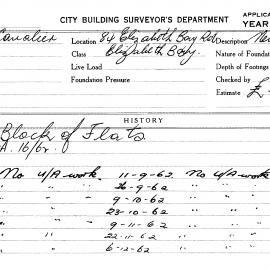 CITY BUILDING SURVEYOR'S DEPARTMENT
APPLICA
YEAR
Cavalier Location 84 Elizabeth Bay Rd. Description New
Class Elizabeth Bay. Nature of Foundat
Live Load Depth of Footings
Foundation Pressure Checked by
Estimate £
HISTORY
Block of Flats
A. 16/62.
No U/A work. 11-9-62 No U/A work
" " " 26-9-62 " "
" " " 9-10-62 " "
" " " 23-10-62 " "
" " " 9-11-62 " "
" " " 22-11-62 " "
" " " 6-12-62 " "